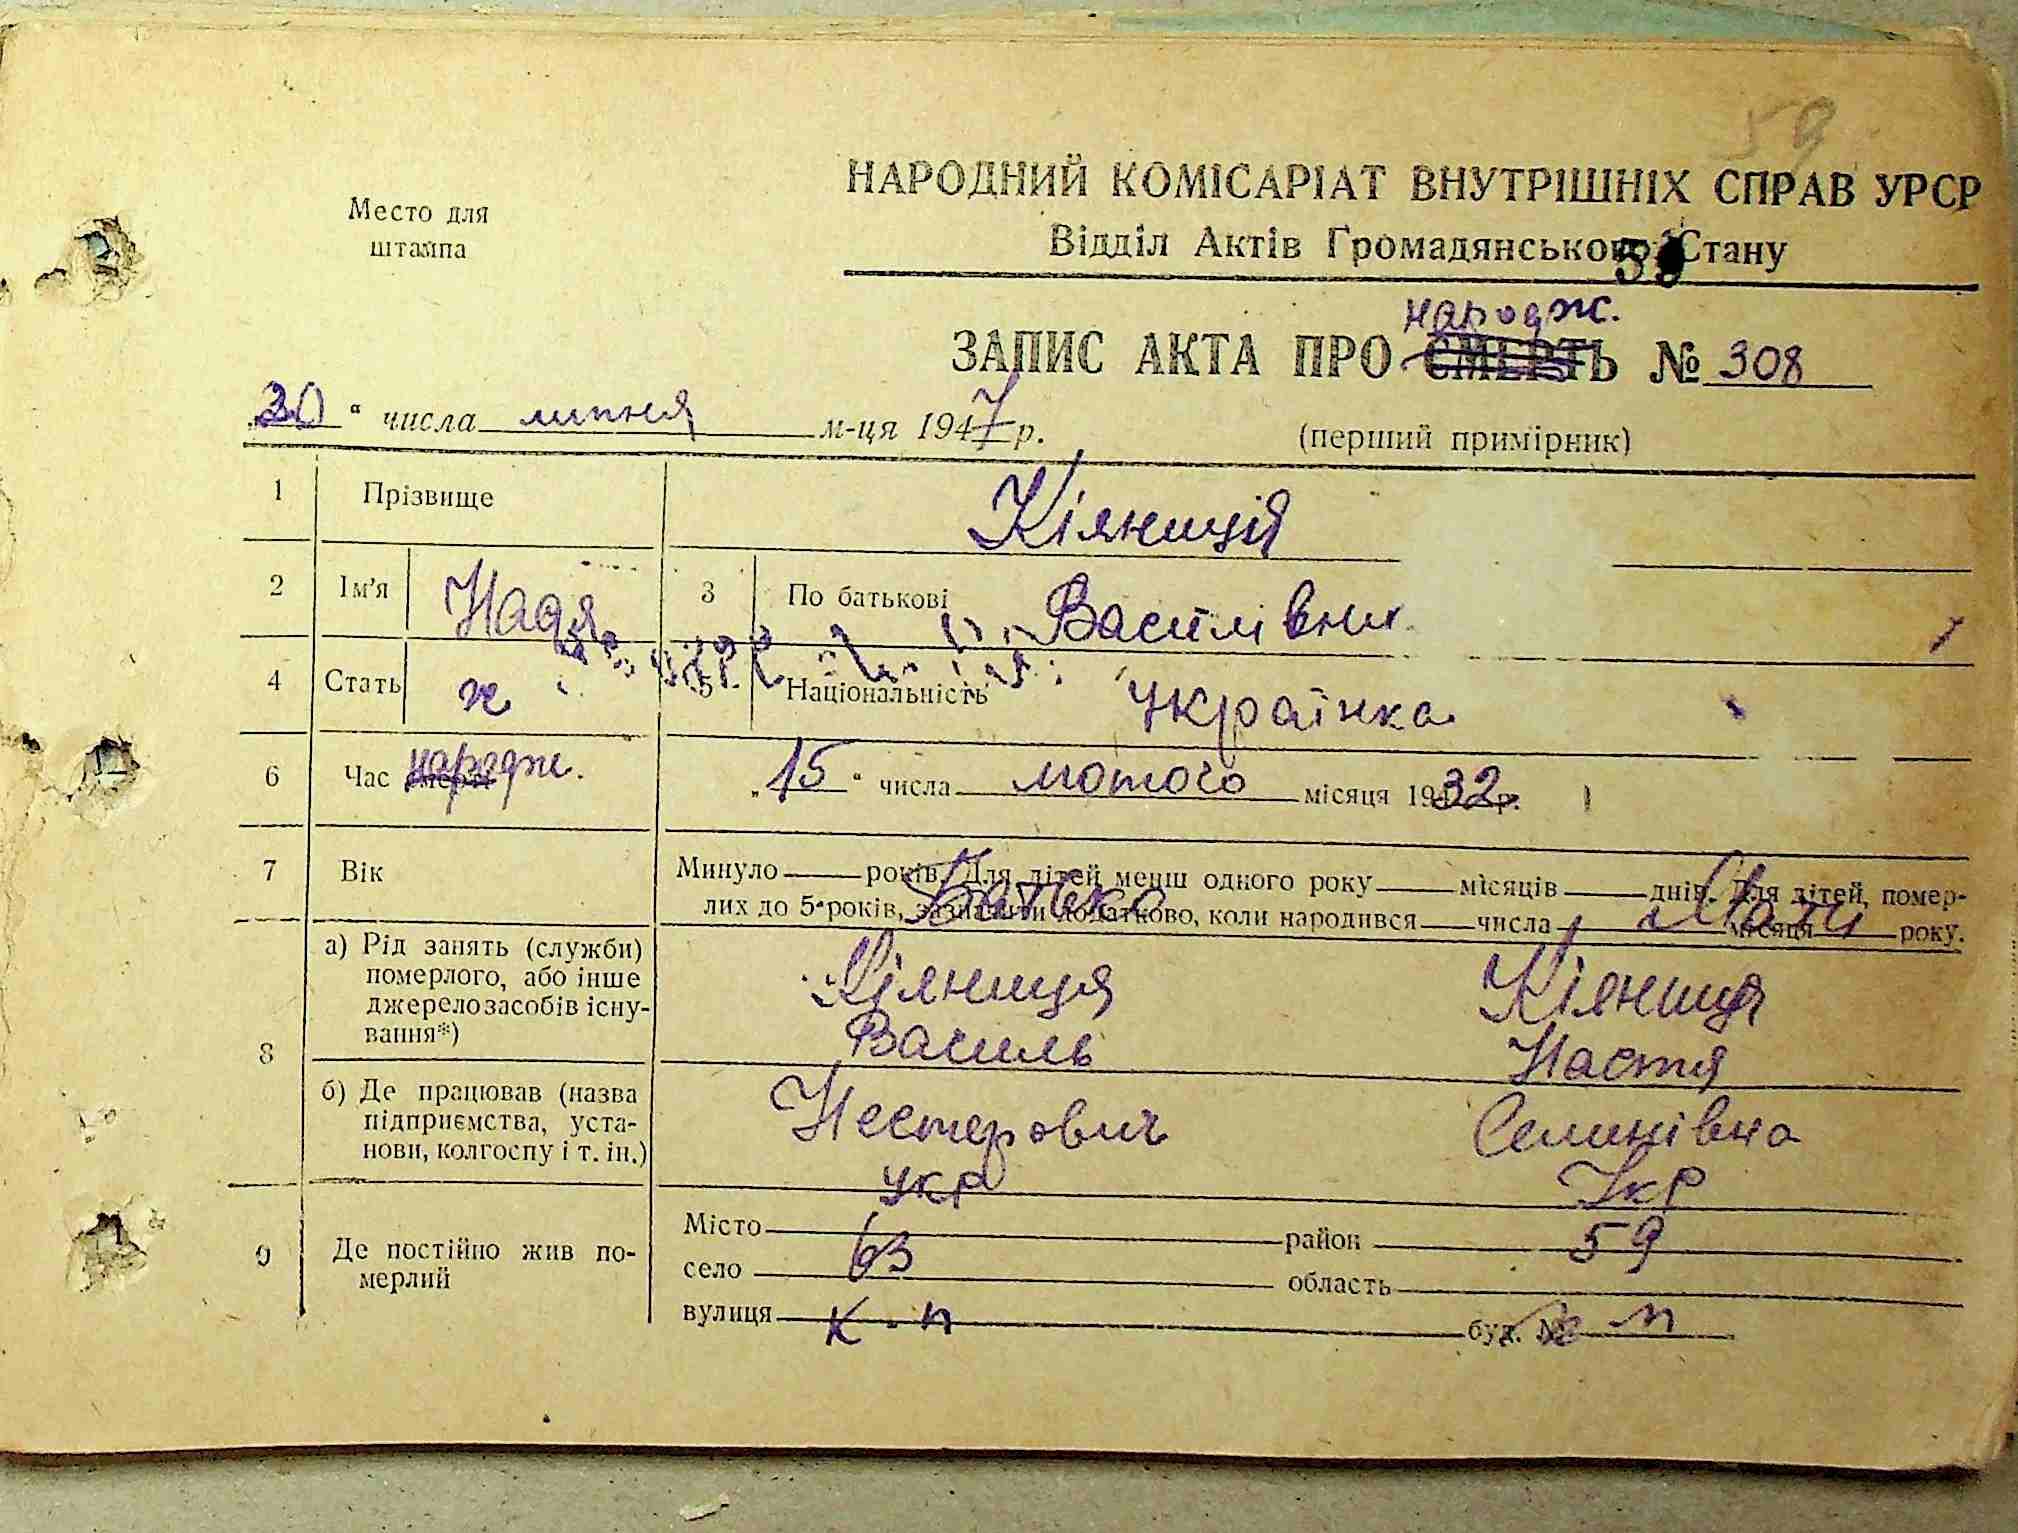 59
НАРОДНИЙ КОМІСАРІАТ ВНУТРІШНІХ СПРАВ УРСР
Место для штампа
Відділ Актів Громадянського Стану
59
народж.
ЗАПИС АКТА ПРО СМЕРТЬ № 308
30 “ числа липня м-ця 1947 р. (перший примірник)
1 Прізвище Кіяниця
2 Ім'я Надя 3 По батькові Василівни
4 Стать ж 5 Національність Українка
6 Час народж. „ 15 “ числа лютого місяця 1932 р.
7 Вік Минуло років. Для дітей менш одного року місяців днів. Для дітей, помер-
лих до 5 років, зазначити додатково, коли народився числа місяця року.
Батько Мати
8 а) Рід занять (служби) померлого, або інше джерело засобів існу-вання*)
Кіяниця Кіяниця
Василь Настя
б) Де працював (назва підприємства, уста-нови, колгоспу і т. ін.)
Нестерович Семинівна
укр Укр
9 Де постійно жив по-мерлий
Місто район 59
село 63 область
вулиця к-п буд. № п